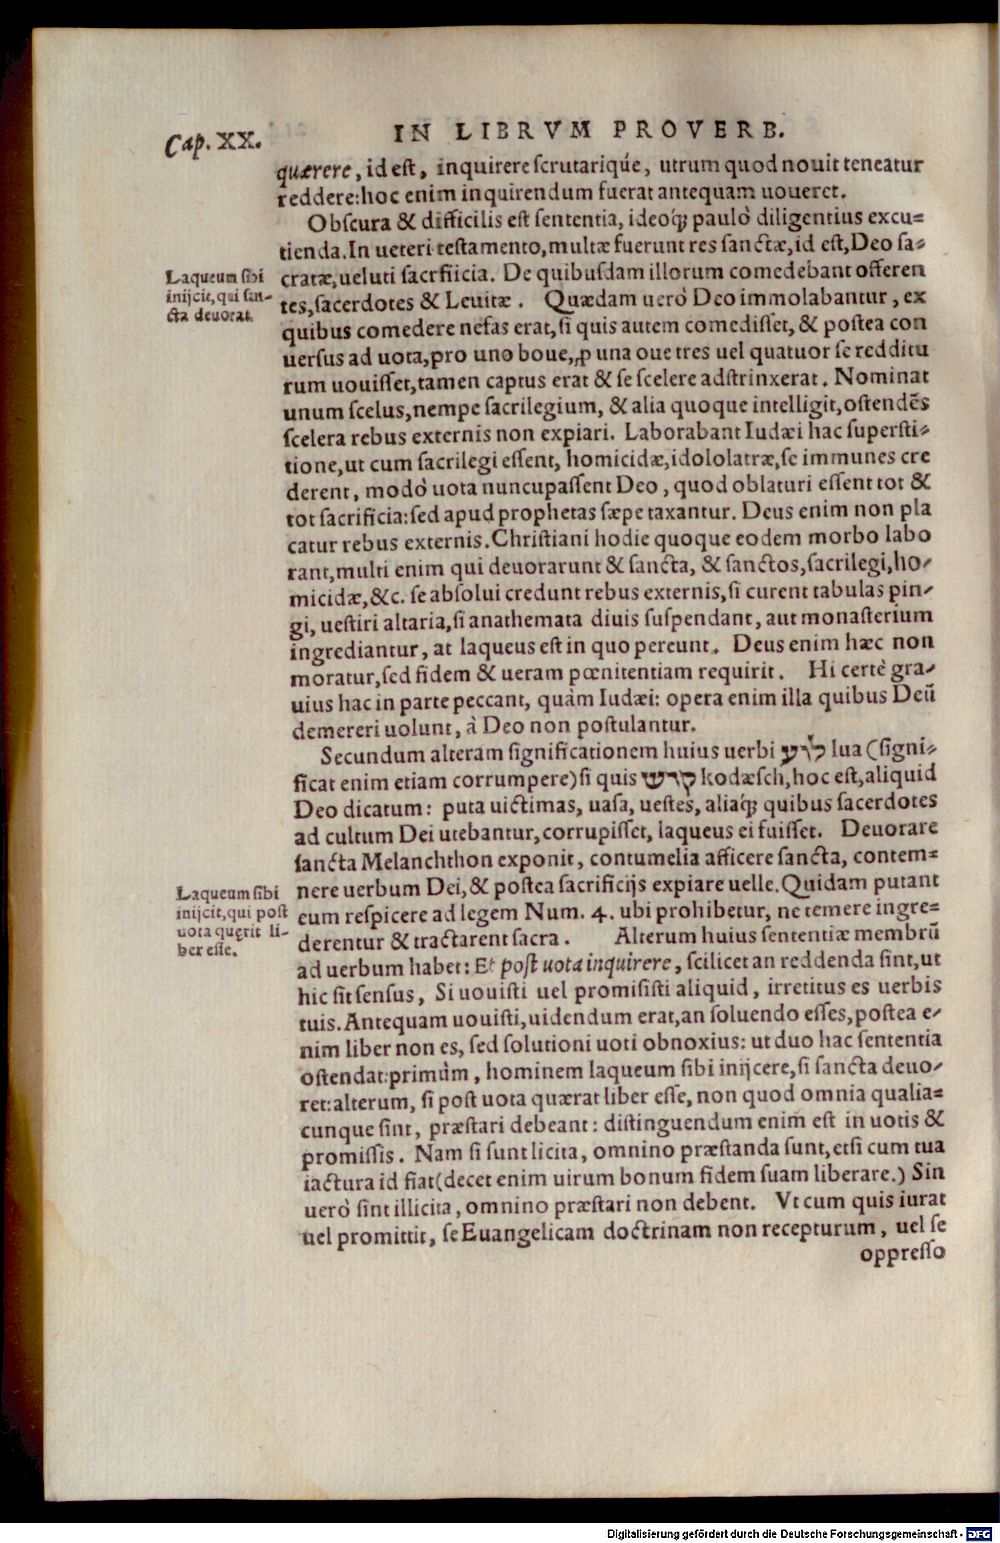 Cap. XX.
IN LIBRVM PROVERB.
quærere, id est, inquirere scrutariq́ue, utrum quod nouit teneatur
reddere: hoc enim inquirendum fuerat antequam uoueret.
Obscura & difficilis est sententia, ideoq́; paulò diligentius excu=
tienda. In ueteri testamento, multæ fuerunt res sanctæ, id est, Deo sa=
cratæ, ueluti sacrfiicia. De quibusdam illorum comedebant offeren
tes, sacerdotes & Leuitæ. Quædam uerò Deo immolabantur, ex
quibus comedere nefas erat, si quis autem comedisset, & postea con
uersus ad uota, pro uno boue, ꝓ una oue tres uel quatuor se redditu
rum uouisset, tamen captus erat & se scelere adstrinxerat. Nominat
unum scelus, nempe sacrilegium, & alia quoque intelligit, ostendẽs
scelera rebus externis non expiari. Laborabant Iudæi hac supersti=
tione, ut cum sacrilegi essent, homicidæ, idololatræ, se immunes cre
derent, modò uota nuncupassent Deo, quod oblaturi essent tot &
tot sacrificia: sed apud prophetas sæpe taxantur. Deus enim non pla
catur rebus externis. Christiani hodie quoque eodem morbo labo
rant, multi enim qui deuorarunt & sancta, & sanctos, sacrilegi, ho-
micidæ, &c. se absolui credunt rebus externis, si curent tabulas pin-
gi, uestiri altaria, si anathemata diuis suspendant, aut monasterium
ingrediantur, at laqueus est in quo pereunt. Deus enim hæc non
moratur, sed fidem & ueram pœnitentiam requirit. Hi certè gra-
uius hac in parte peccant, quàm Iudæi: opera enim illa quibus Deũ
demereri uolunt, à Deo non postulantur.
Secundum alteram significationem huius uerbi לוֹע lua (signi=
ficat enim etiam corrumpere) si quis קדש kodæsch, hoc est, aliquid
Deo dicatum: puta uictimas, uasa, uestes, aliaq́; quibus sacerdotes
ad cultum Dei utebantur, corrupisset, laqueus ei fuisset. Deuorare
sancta Melanchthon exponit, contumelia afficere sancta, contem=
nere uerbum Dei, & postea sacrificijs expiare uelle. Quidam putant
eum respicere ad legem Num. 4. ubi prohibetur, ne temere ingre=
derentur & tractarent sacra. Alterum huius sententiæ membrũ
ad uerbum habet: Et post uota inquirere, scilicet an reddenda sint, ut
hic sit sensus, Si uouisti uel promisisti aliquid, irretitus es uerbis
tuis. Antequam uouisti, uidendum erat, an soluendo esses, postea e-
nim liber non es, sed solutioni uoti obnoxius: ut duo hac sententia
ostendat: primùm, hominem laqueum sibi inijcere, si sancta deuo-
ret: alterum, si post uota quærat liber esse, non quod omnia qualia=
cunque sint, præstari debeant: distinguendum enim est in uotis &
promissis. Nam si sunt licita, omnino præstanda sunt, etsi cum tua
iactura id fiat (decet enim uirum bonum fidem suam liberare.) Sin
uerò sint illicita, omnino præstari non debent. Vt cum quis iurat
uel promittit, se Euangelicam doctrinam non recepturum, uel se
oppresso
Laqueum sibi
inijcit, qui san-
cta deuorat.
Laqueum sibi
inijcit, qui post
uota quęrit li-
ber esse.
Digitalisierung gefördert durch die Deutsche Forschungsgemeinschaft - DFG